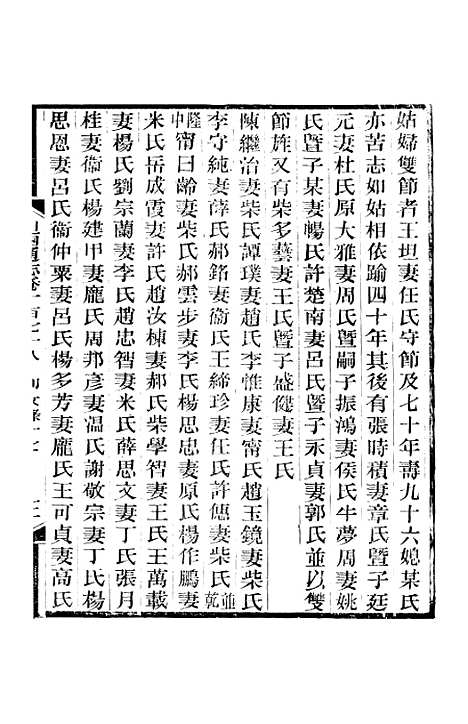 姑婦雙節者王坦妻任氏守節及七十年壽九十六媳某氏
亦苦志如姑相依踰四十年其後有張時積妻章氏暨子廷
元妻杜氏原大雅妻周氏暨嗣子振鴻妻侯氏牛夢周妻姚
氏暨子某妻暢氏許楚南妻呂氏暨子永貞妻郭氏並以雙
節旌又有柴多藝妻王氏暨子盛健妻王氏
陳繼治妻柴氏譚璞妻趙氏李惟康妻甯氏趙玉鏡妻柴氏
李守純妻薛氏郝銘妻衞氏王締珍妻任氏許億妻柴氏並乾
隆中甯曰齡妻柴氏郝雲步妻李氏楊思忠妻原氏楊作鵬妻
米氏岳成霞妻許氏趙汝棟妻郝氏柴學智妻王氏王萬載
妻楊氏劉宗蘭妻李氏趙忠智妻米氏薛思文妻丁氏張月
桂妻衞氏楊建甲妻龐氏周邦彥妻溫氏謝敬宗妻丁氏楊
思恩妻呂氏衞仲粟妻呂氏楊多芳妻龐氏王可貞妻高氏